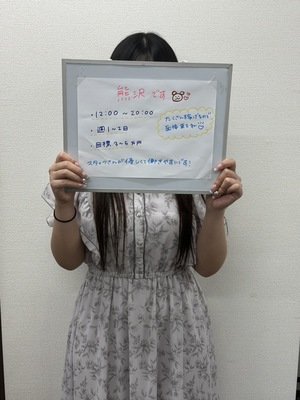 熊沢です
・12:00~20:00
・週1~2日
・目標3~5万円
たくさん稼げるから
面接来てね
スタッフさんが優しくて働きやすいです!